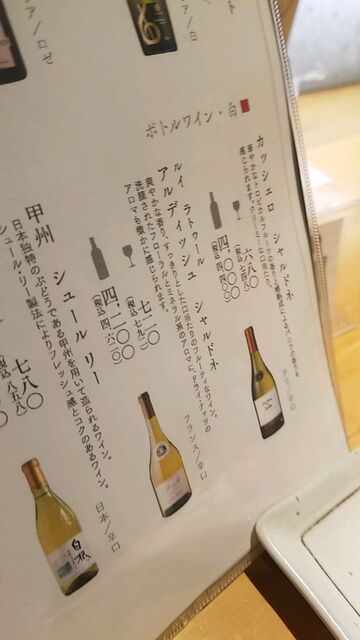 ア/ロゼ
ア/白
ボトルワイン・白
カッシェロ シャルドネ
華やかなトロピカルフルーツの香りと
感じられます。クリーミーな口当たり。
六八〇
四、〇〇〇
チリ/辛口
ルイ ラトゥール
アルディッシュ シャルドネ
爽やかな香り、すっきりとした口当たりのフルーティなワイン。
洗練されたフローラルとミネラル系のアロマに、ドライナッツの
アロマも微かに感じられます。
七二〇
(税込 七九二)
四、二〇〇
(税込 四、六二〇)
フランス/辛口
甲州 シュール リー
日本独特のぶどうである甲州を用いて造られるワイン。
シュール・リー製法によりフレッシュ感とコクのあるワイン。
七八〇
(税込 八五八)
日本/辛口